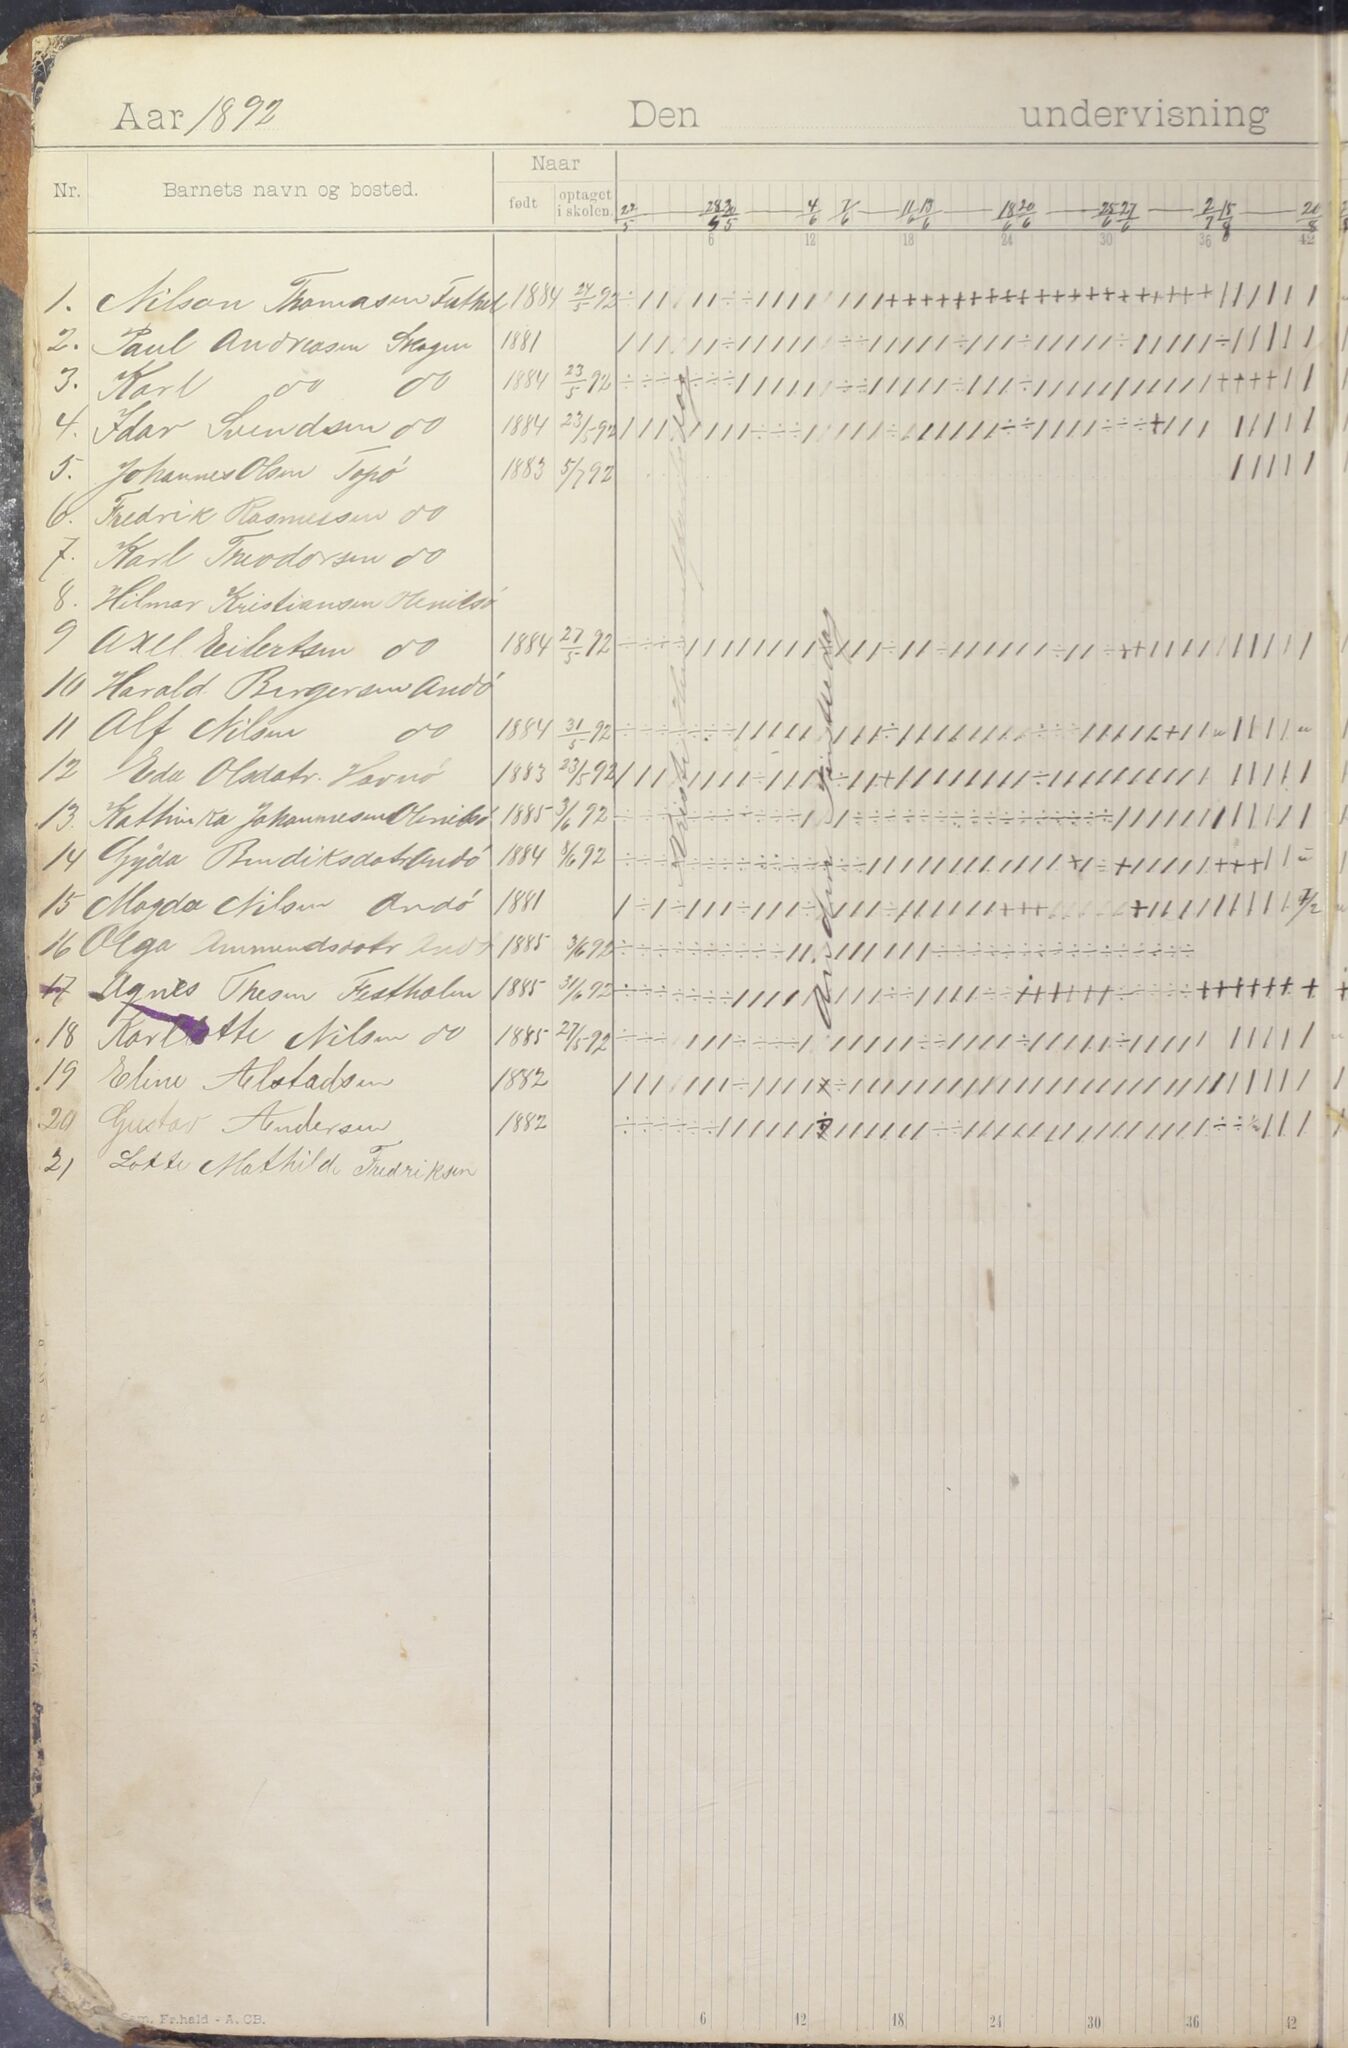 Aar 1892 Den undervisning
Nr. Barnets navn og bosted. Naar
født optaget i skolen.
22/5 28/5 30/5 4/6 7/6 11/6 13/6 18/6 20/6 25/6 27/6 2/7 15/8 20/8
6 12 18 24 30 36 42
1. Nilson Thomasen 1884 24/5 92
2. Paul Andreasen Skogen 1881
3. Karl do do 1884 23/5 92
4. Idar Svendsen do 1884 23/5 92
5. Johannes Olsen Topö 1883 5/7 92
6. Fredrik Rasmussen do
7. Karl Theodorsen do
8. Hilmar Kristiansen Olenilsö
9 Axel Eilertsen do 1884 27/5 92
10 Harald Birgersen Andö
11 Alf Nilsen do 1884 31/5 92
12 Eda Olsdatr. Havnö 1883 23/5 92
13. Kathinka Johannesen Olenilsö 1885 3/6 92
14 Gyda Bendiksdatr Andö 1884 8/6 92
15 Magda Nilsen Andö 1881
16 Olga Ammundsdatr Andö 1885 3/6 92
17 Agnes Thesen Festholm 1885 31/6 92
18 Karllotte Nilsen do 1885 27/5 92
19 Eline Alstadsen 1882
20 Gustav Andersen 1882
21 Lotte Mathilde Fredriksen
Kristi Himmelfartsdag
Anden Pintsedag
Fr.hald - A. CB.
6 12 18 24 30 36 42